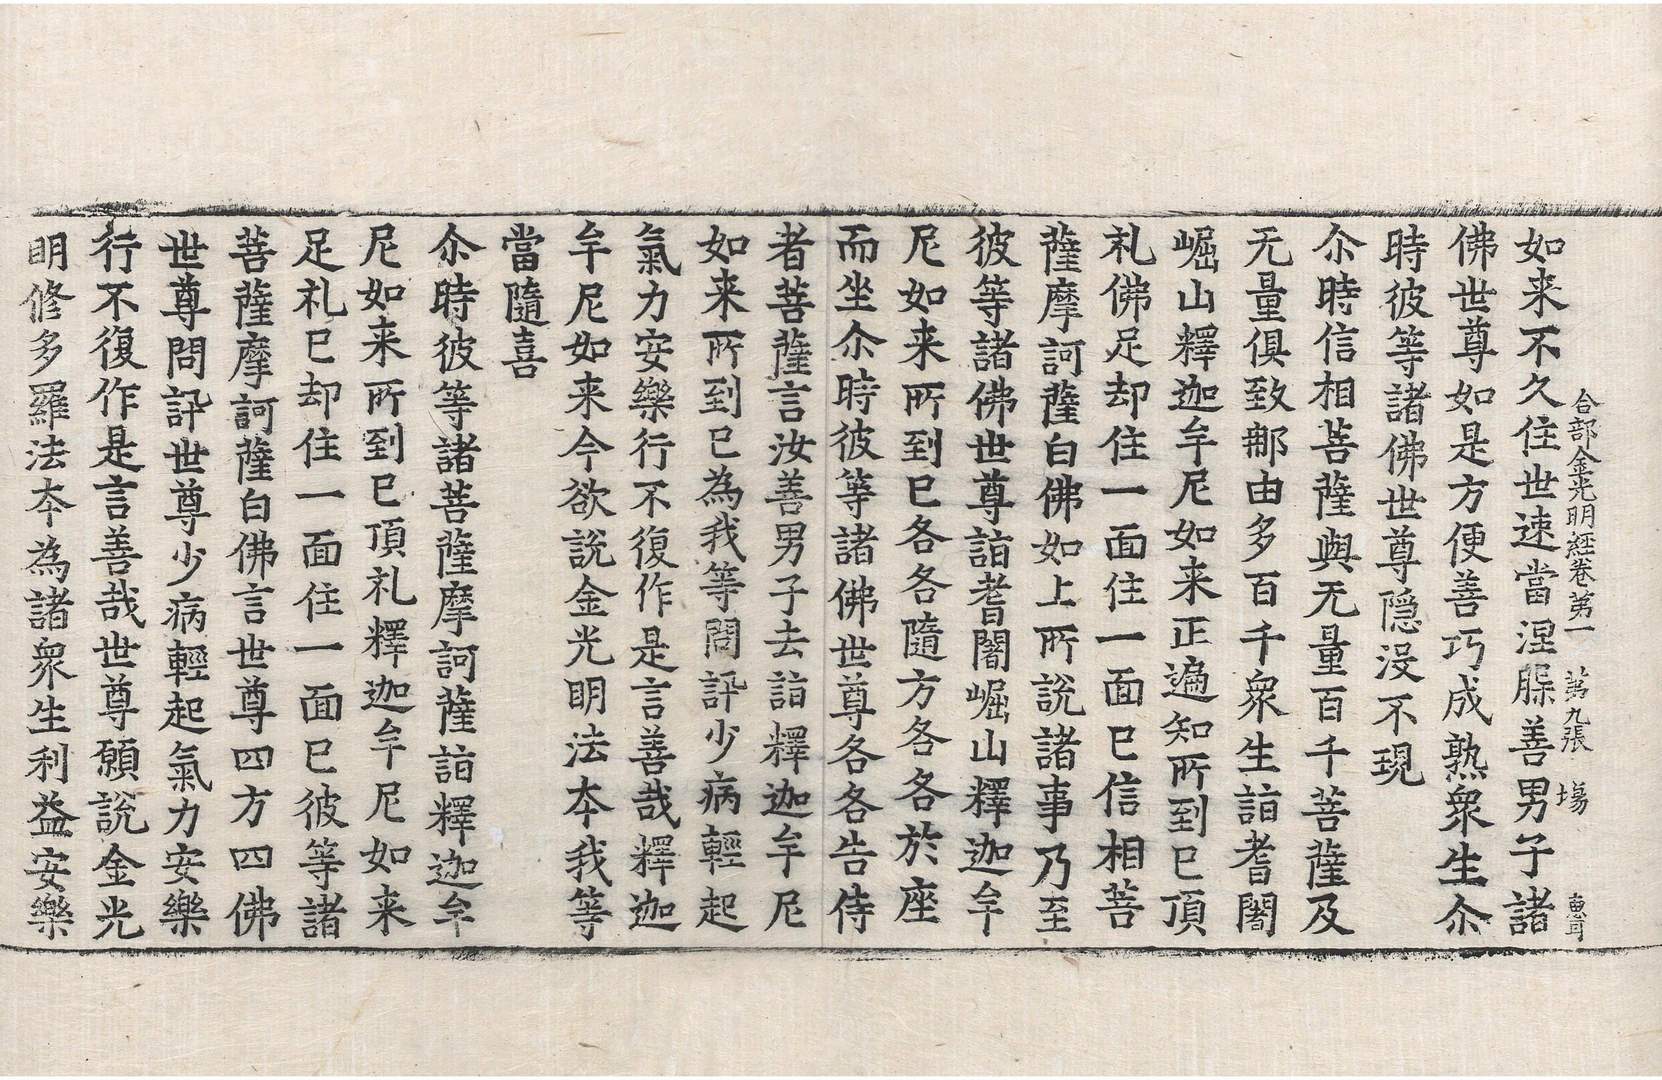 合部金光明経卷第一 第九張 塲 惠茸
如来不久住世速當涅槃善男子諸
佛世尊如是方便善巧成熟衆生尒
時彼等諸佛世尊隐没不現
尒時信相菩薩與无量百千菩薩及
无量俱致郍由多百千衆生詣耆闍
崛山釋迦牟尼如来正遍知所到已頂
礼佛足却住一面住一面已信相菩
薩摩訶薩白佛如上所説諸事乃至
彼等諸佛世尊詣耆闍崛山釋迦牟
尼如来所到已各各隨方各各於座
而坐尒時彼等諸佛世尊各各告侍
者菩薩言汝善男子去詣釋迦牟尼
如来所到已為我等問訊少病輕起
氣力安樂行不復作是言善哉釋迦
牟尼如来今欲説金光明法夲我等
當隨喜
尒時彼等諸菩薩摩訶薩詣釋迦牟
尼如来所到已頂礼釋迦牟尼如来
足礼已却住一面住一面已彼等諸
菩薩摩訶薩白佛言世尊四方四佛
世尊問訊世尊少病輕起氣力安樂
行不復作是言善哉世尊願説金光
明修多羅法夲為諸衆生利益安樂